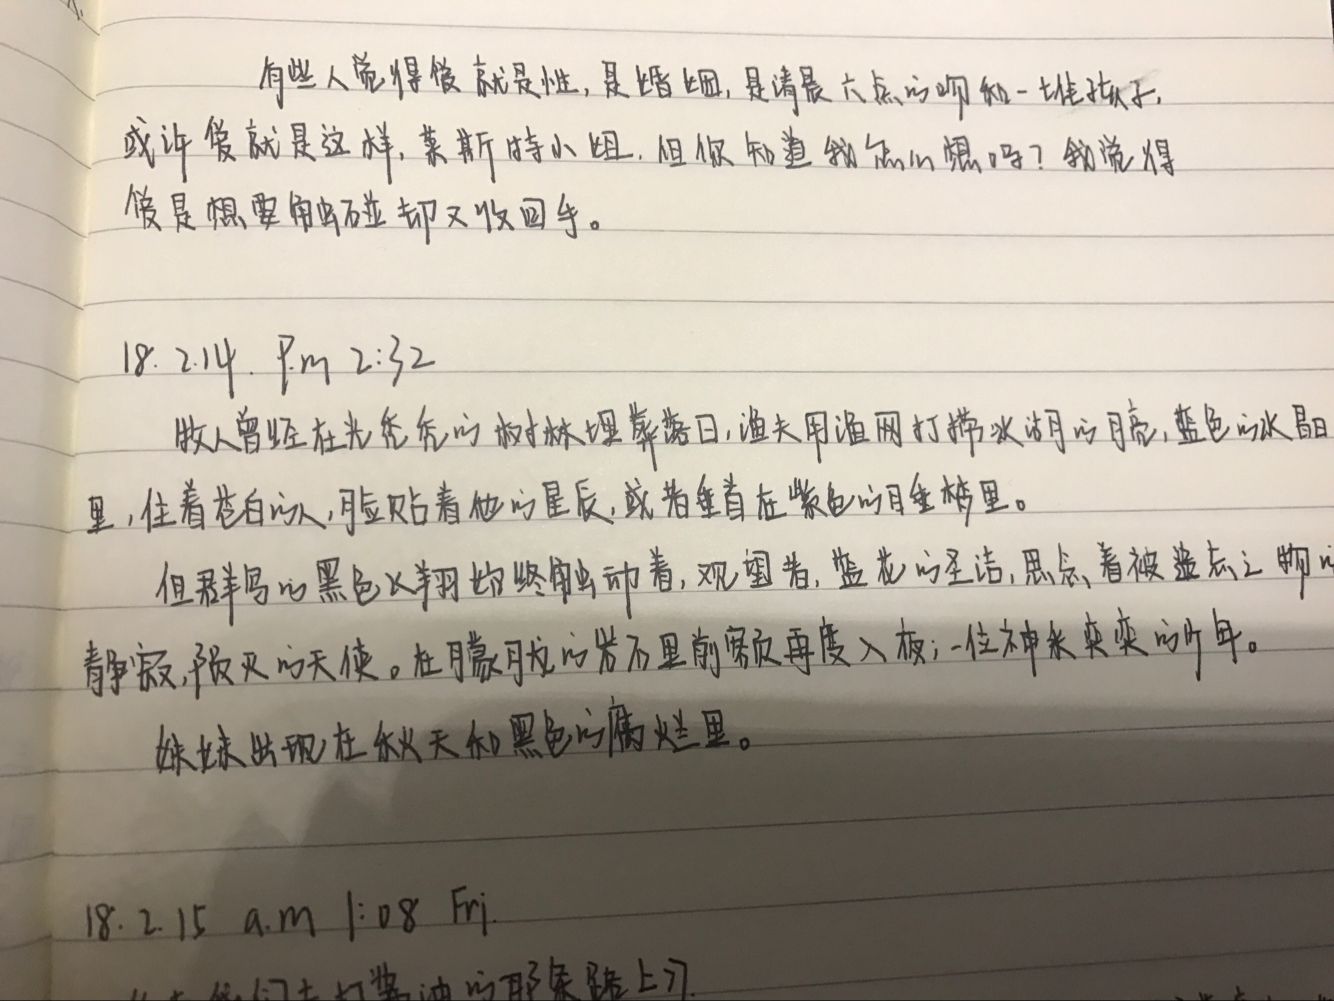 有些人觉得爱就是性,是婚姻,是清晨六点的吻和一堆孩子,
或许爱就是这样,莱斯特小姐,但你知道我怎么想吗?我觉得
爱是想要触碰却又收回手。
18.2.14. P.m 2:32
牧人曾经在光秃秃的树林埋葬落日,渔夫用渔网打捞冰湖的月亮,蓝色的水晶
里,住着苍白的人,脸贴着他的星辰,或者垂首在紫色的睡梦里。
但群鸟的黑色飞翔始终触动着,观望者,蓝花的圣洁,思念着被遗忘之物的
静寂,毁灭的天使。在朦胧的岩石里前额再度入夜;一位神采奕奕的少年。
妹妹出现在秋天和黑色的腐烂里。
18.2.15 a.m 1:08 Fri.
打酱油的那条路上